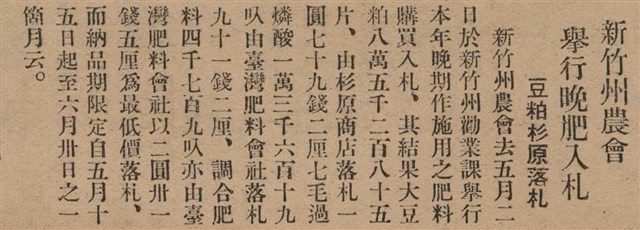 新竹州農會
舉行晚肥入札
豆粕杉原落札
新竹州農會去五月二
日於新竹州勸業課舉行
本年晚期作施用之肥料
購買入札、其結果大豆
粕八萬五千二百八十五
片、由杉原商店落札一
圓七十九錢二厘七毛過
燐酸一萬三千六百十九
叺由臺灣肥料會社落札
九十一錢二厘、調合肥
料四千七百九叺亦由臺
灣肥料會社以二圓卅一
錢五厘爲最低價落札、
而納品期限定自五月十
五日起至六月卅日之一
箇月云。